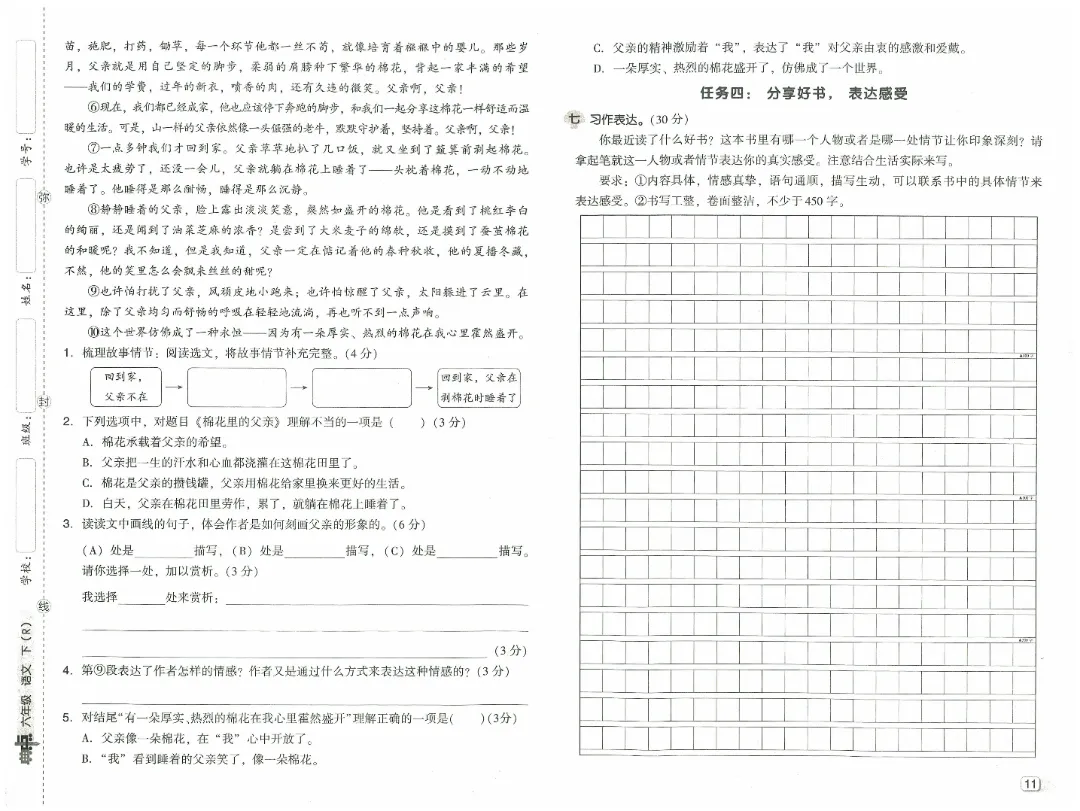 苗，施肥，打药，锄草，每一个环节他都一丝不苟，就像培育着襁褓中的婴儿。那些岁
月，父亲就是用自己坚定的脚步，柔弱的肩膀种下繁华的棉花，背起一家丰满的希望
——我们的学费，过年的新衣，喷香的肉，还有久违的微笑。父亲啊，父亲！
⑥现在，我们都已经成家，他也应该停下奔跑的脚步，和我们一起分享这棉花一样舒适而温
暖的生活。可是，山一样的父亲依然像一头倔强的老牛，默默守护着，坚持着。父亲啊，父亲！
⑦一点多钟我们才回到家。父亲草草地扒了几口饭，就又坐到了簸箕前剥起棉花。
也许是太疲劳了，还没一会儿，父亲就躺在棉花上睡着了——头枕着棉花，一动不动地
睡着了。他睡得是那么酣畅，睡得是那么沉静。
⑧静静睡着的父亲，脸上露出淡淡笑意，粲然如盛开的棉花。他是看到了桃红李白
的绚丽，还是闻到了油菜芝麻的浓香？是尝到了大米麦子的绵软，还是摸到了蚕茧棉花
的和暖呢？我不知道，但是我知道，父亲一定在惦记着他的春种秋收，他的夏播冬藏，
不然，他的笑里怎么会飘来丝丝的甜呢？
⑨也许怕打扰了父亲，风顽皮地小跑来；也许怕惊醒了父亲，太阳躲进了云里。在
这里，除了父亲均匀而舒畅的呼吸在轻轻地流淌，再也听不到一点声响。
⑩这个世界仿佛成了一种永恒——因为有一朵厚实、热烈的棉花在我心里霍然盛开。
1. 梳理故事情节：阅读选文，将故事情节补充完整。(4 分)
回到家，
父亲不在
回到家，父亲在
剥棉花时睡着了
2. 下列选项中，对题目《棉花里的父亲》理解不当的一项是（　　）(3 分)
A. 棉花承载着父亲的希望。
B. 父亲把一生的汗水和心血都浇灌在这棉花田里了。
C. 棉花是父亲的攒钱罐，父亲用棉花给家里换来更好的生活。
D. 白天，父亲在棉花田里劳作，累了，就躺在棉花上睡着了。
3. 读读文中画线的句子，体会作者是如何刻画父亲的形象的。(6 分)
(A) 处是______描写，(B) 处是______描写，(C) 处是______描写。
请你选择一处，加以赏析。(3 分)
我选择_____处来赏析：
(3 分)
4. 第⑨段表达了作者怎样的情感？作者又是通过什么方式来表达这种情感的？(3 分)
5. 对结尾“有一朵厚实、热烈的棉花在我心里霍然盛开”理解正确的一项是(　　)(3分)
A. 父亲像一朵棉花，在“我”心中开放了。
B. “我”看到睡着的父亲笑了，像一朵棉花。
C. 父亲的精神激励着“我”，表达了“我”对父亲由衷的感激和爱戴。
D. 一朵厚实、热烈的棉花盛开了，仿佛成了一个世界。
任务四： 分享好书， 表达感受
七 习作表达。(30 分)
你最近读了什么好书？这本书里有哪一个人物或者是哪一处情节让你印象深刻？请
拿起笔就这一人物或者情节表达你的真实感受。注意结合生活实际来写。
要求：①内容具体，情感真挚，语句通顺，描写生动，可以联系书中的具体情节来
表达感受。②书写工整，卷面整洁，不少于 450 字。
11
学号：
姓名：
班级：
学校：
弥
封
线
六年级 语文 下（R）